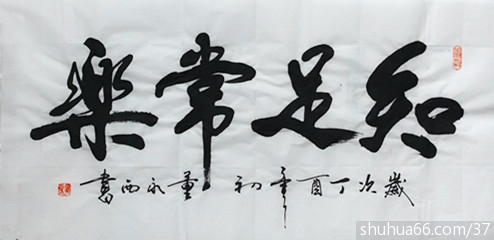 知足常樂
歲次丁酉年初董永西書
shuhua66.com/37